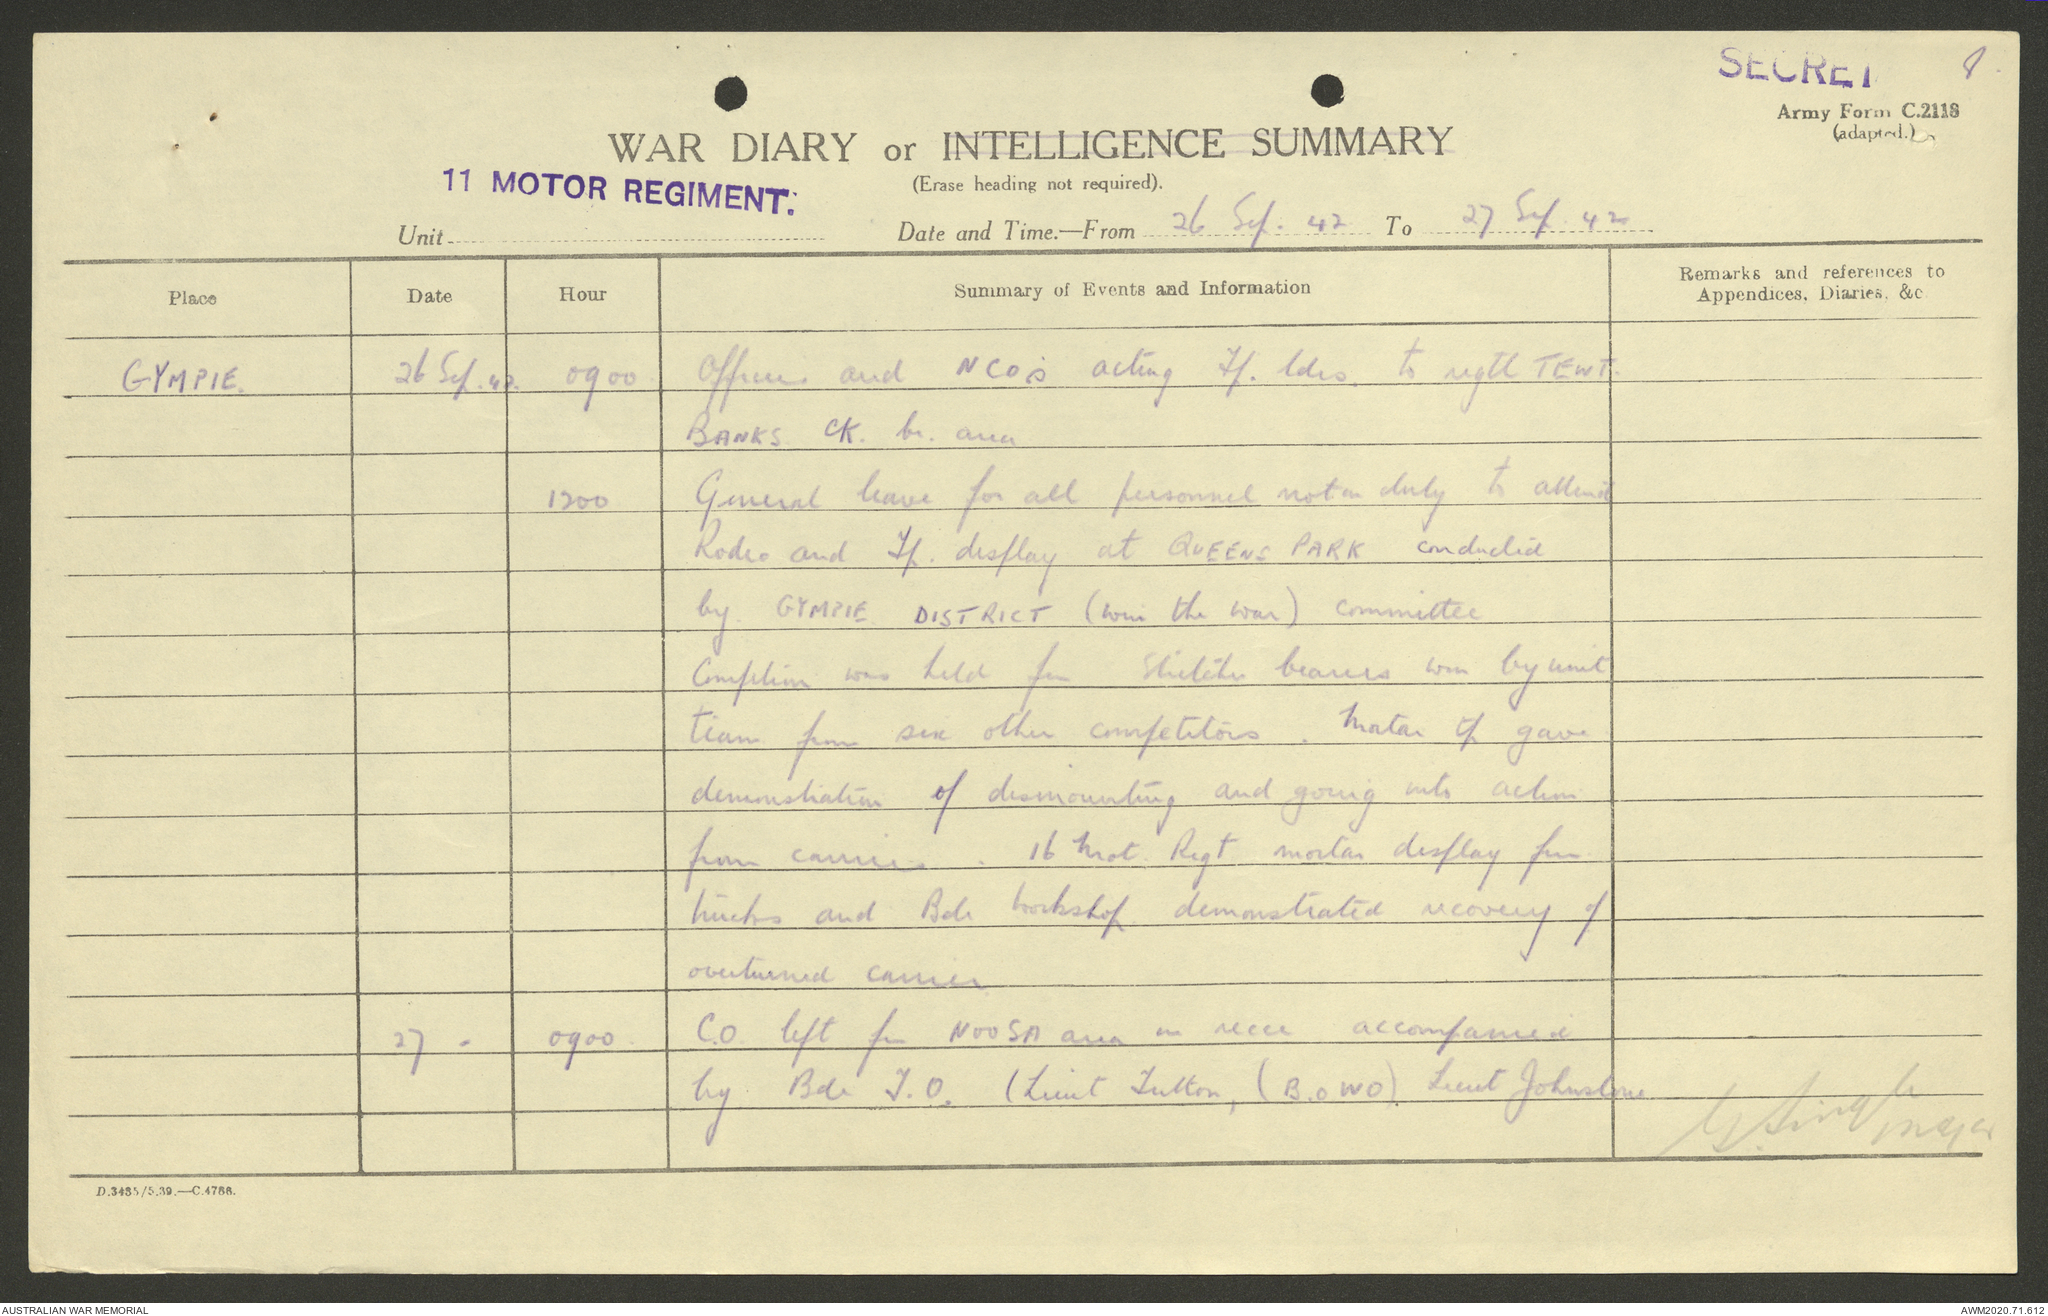 SECRET 8
Army Form C.2118
(adapted.)
WAR DIARY or INTELLIGENCE SUMMARY
(Erase heading not required).
11 MOTOR REGIMENT.
Unit
Date and Time.—From 26 Sep. 42 To 27 Sep 42
Place Date Hour Summary of Events and Information Remarks and references to
Appendices, Diaries, &c
GYMPIE. 26 Sep. 42. 0900 Officers and NCO's acting Tp. ldrs. to regtl TEWT.
BANKS CK. br. area
1200 General leave for all personnel not on duty to attend
Rodeo and Tp. display at QUEENS PARK conducted
by GYMPIE DISTRICT (win the war) committee
Compltion was held for Stretcher bearers won by unit
team from six other competitors. Mortar Tp gave
demonstration of dismounting and going into action
from carriers. 16 Mot. Regt mortar display from
trucks and Bde workshop demonstrated recovery of
overturned carrier
27 " 0900 C.O. left for NOOSA area on recce accompanied
by Bde I.O. (Lieut Fulton, (B.O.W.O) Lieut Johnstone
Major
D.3485/5.39.—C.4786.
AUSTRALIAN WAR MEMORIAL
AWM2020.71.612